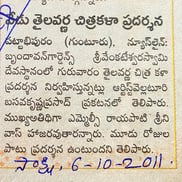 నేడు తైలవర్ణ చిత్రకళా ప్రదర్శన
పట్టాభిపురం (గుంటూరు), న్యూస్‌లైన్:
బృందావన్‌గార్డెన్స్ శ్రీవేంకటేశ్వరస్వామి
దేవస్థానంలో గురువారం తైలవర్ణ చిత్ర కళా
ప్రదర్శన నిర్వహిస్తున్నట్లు ఆర్టిస్ట్‌వెలటూరి
బసవకృష్ణప్రసాద్ ప్రకటనలో తెలిపారు.
ముఖ్యఅతిథిగా ఎమ్మెల్సీ రాయపాటి శ్రీని
వాస్ హాజరవుతారన్నారు. మూడు రోజుల
పాటు ప్రదర్శన ఉంటుందని తెలిపారు.
సాక్షి, 6-10-2011.